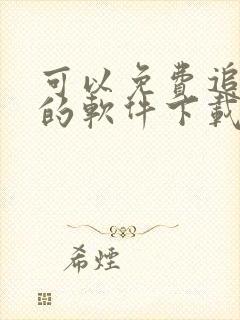 可以免費追
的軟件下載
希煙